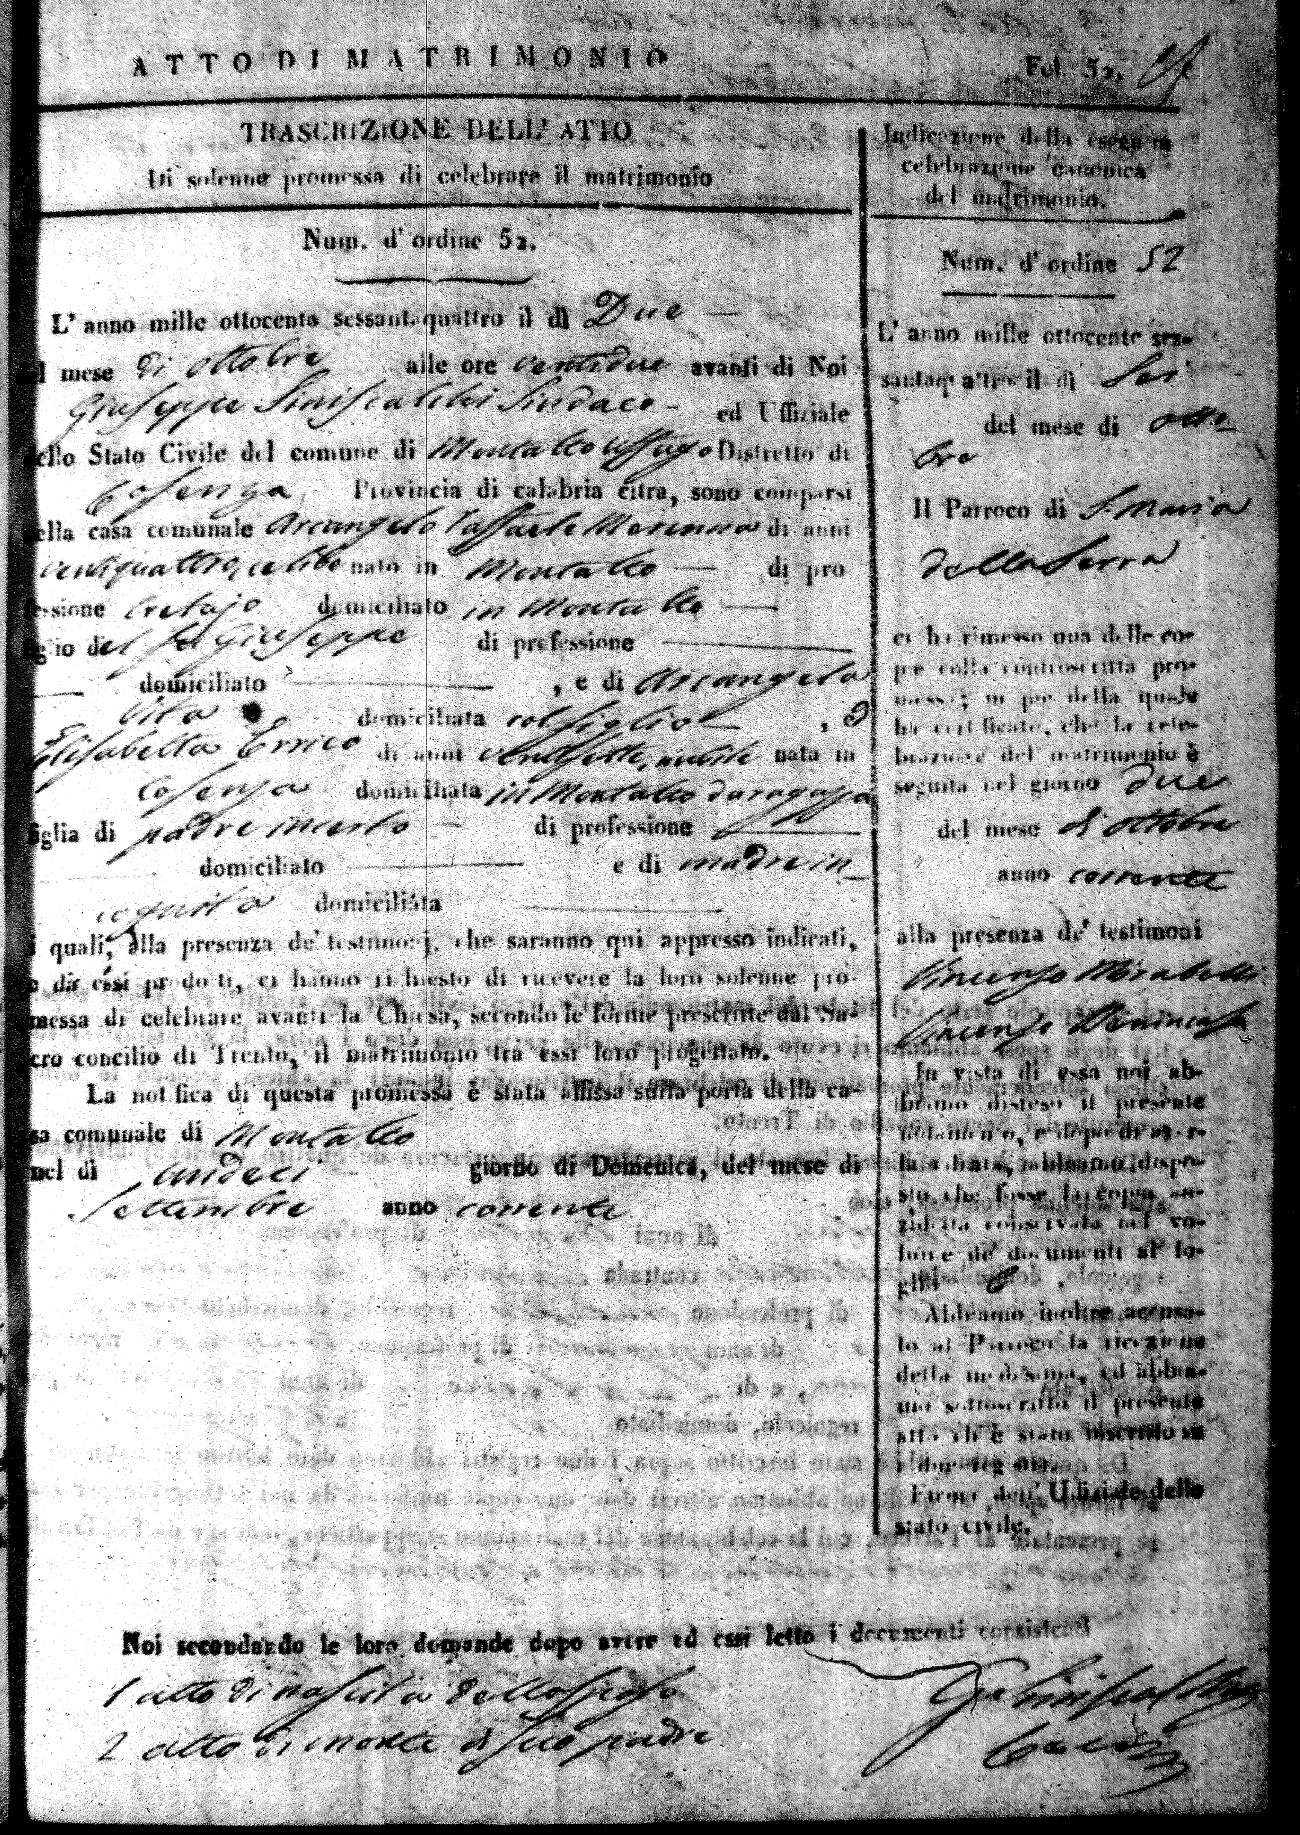 ATTO DI MATRIMONIO
Fol. 52.
TRASCRIZIONE DELL' ATTO
Di solenne promessa di celebrare il matrimonio
Num. d' ordine 52.
L' anno mille ottocento sessantaquattro il dì Due
mese di ottobre alle ore ventidue avanti di Noi
Giuseppe Siniscalchi Sindaco ed Uffiziale
dello Stato Civile del comune di Montalto Uffugo Distretto di
Cosenza Provincia di calabria citra, sono comparsi
nella casa comunale Arcangelo Raffaele Morenno di anni
ventiquattro, celibe nato in Montalto di pro
fessione Cretajo domiciliato in Montalto
figlio del fu Giuseppe di professione
domiciliato , e di Arcangela
Vita domiciliata col figlio , ed
Elisabetta Errico di anni ventisette, nubile nata in
Cosenza domiciliata in Montalto da ragazza
figlia di padre incerto di professione
domiciliato e di madre in
cognita domiciliata
i quali, alla presenza de' testimonj, che saranno qui appresso indicati,
e da essi prodotti, ci hanno richiesto di ricevere la loro solenne pro-
messa di celebrare avanti la Chiesa, secondo le forme prescritte dal Sa-
cro concilio di Trento, il matrimonio tra essi loro progettato.
La notifica di questa promessa è stata affissa sulla porta della ca-
sa comunale di Montalto
nel dì undeci giorno di Domenica, del mese di
Settembre anno corrente
Noi secondando le loro domande dopo avere ad essi letto i documenti consistenti
1 atto di nascita dello sposo
2 atto di morte di suo padre
Indicazione della eseguita
celebrazione canonica
del matrimonio.
Num. d' ordine 52
L' anno mille ottocento ses-
santaquattro il dì Sei
del mese di otto
bre
Il Parroco di S. Maria
della Serra
ci ha rimesso una delle co-
pie colla controscritta pro-
messa; in piè della quale
ha certificato, che la cele-
brazione del matrimonio è
seguita nel giorno due
del mese di ottobre
anno corrente
alla presenza de' testimoni
Vincenzo Mirabelli
Vincenzo
In vista di essa noi ab-
biamo disteso il presente
notamento, e dopo di averlo
abbiamo dispo-
sto che fosse la copia an-
zidetta conservata nel vo-
lume de' documenti al fo-
glio
Abbiamo inoltre accusa-
to al Parroco la ricezione
della medesima, ed abbia-
mo sottoscritto il presente
atto ch' è stato inscritto su
i due registri
Firma dell' Ufiziale dello
stato civile.